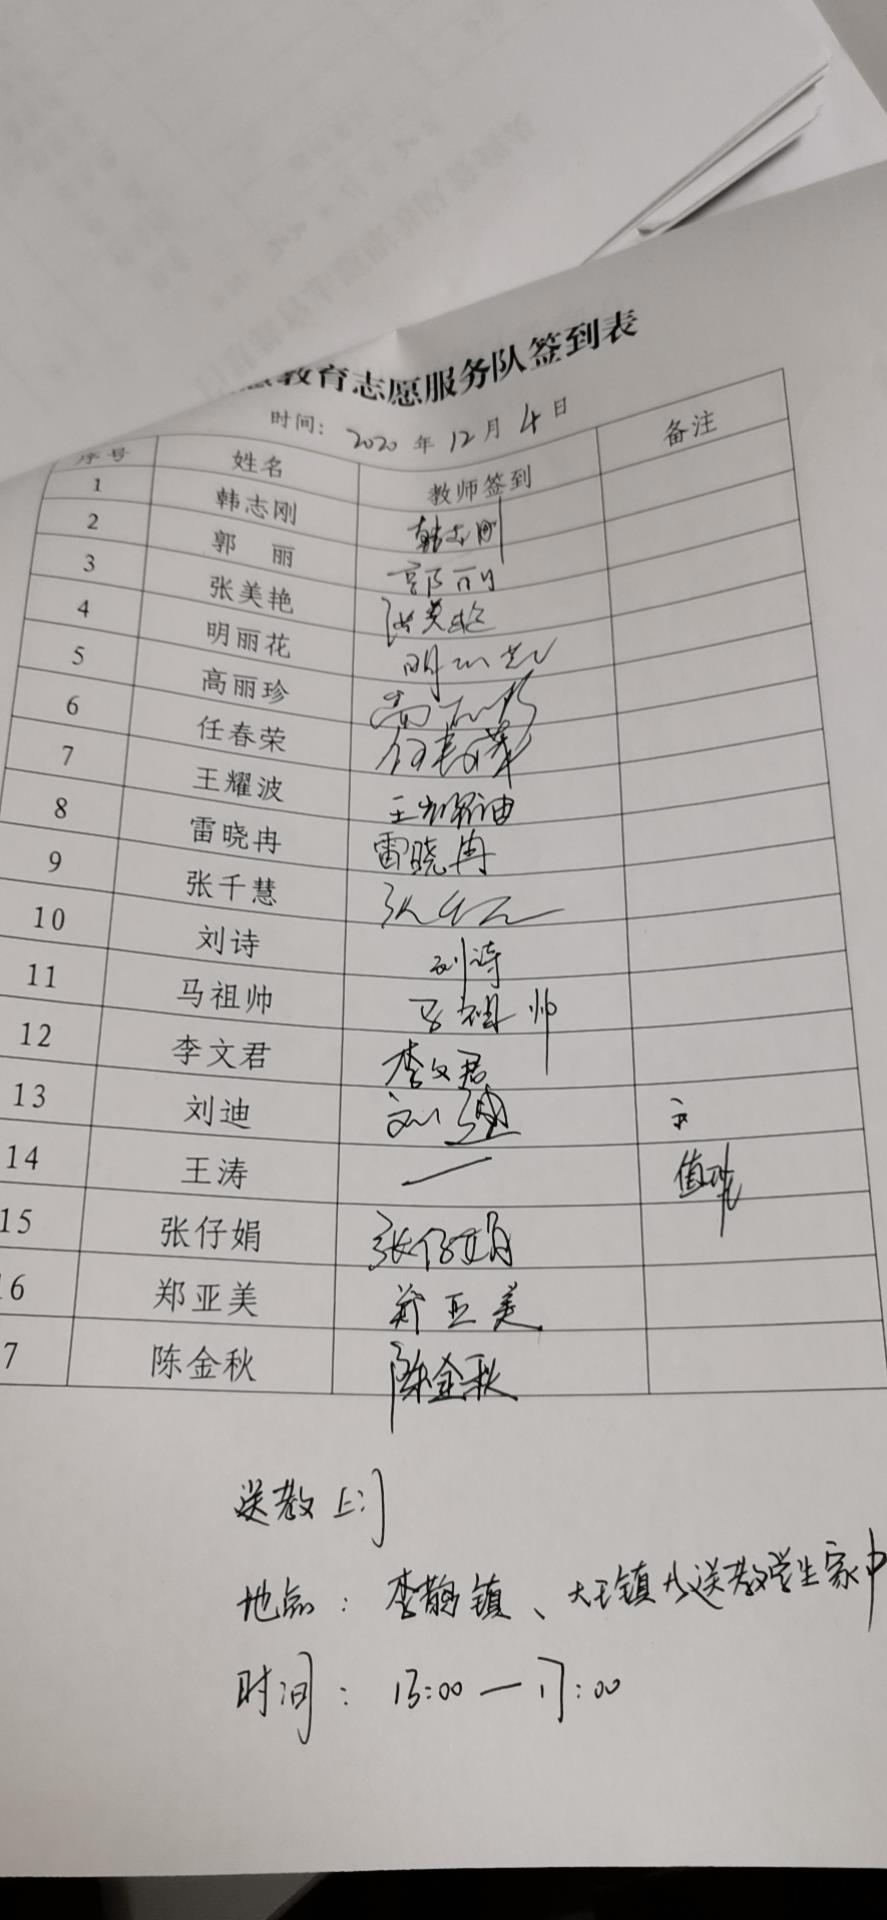 教育志愿服务队签到表
时间: 2020 年 12 月 4 日
序号 姓名 教师签到 备注
1 韩志刚 韩志刚
2 郭 丽 郭丽
3 张美艳 张美艳
4 明丽花 明丽花
5 高丽珍 高丽珍
6 任春荣 任春荣
7 王耀波 王耀波
8 雷晓冉 雷晓冉
9 张千慧 张千慧
10 刘诗 刘诗
11 马祖帅 马祖帅
12 李文君 李文君
13 刘迪 刘迪
14 王涛 — 值班
15 张仔娟 张仔娟
6 郑亚美 郑亚美
7 陈金秋 陈金秋
送教上门
地点: 李鹊镇、大王镇 送教学生家中
时间: 13:00—17:00